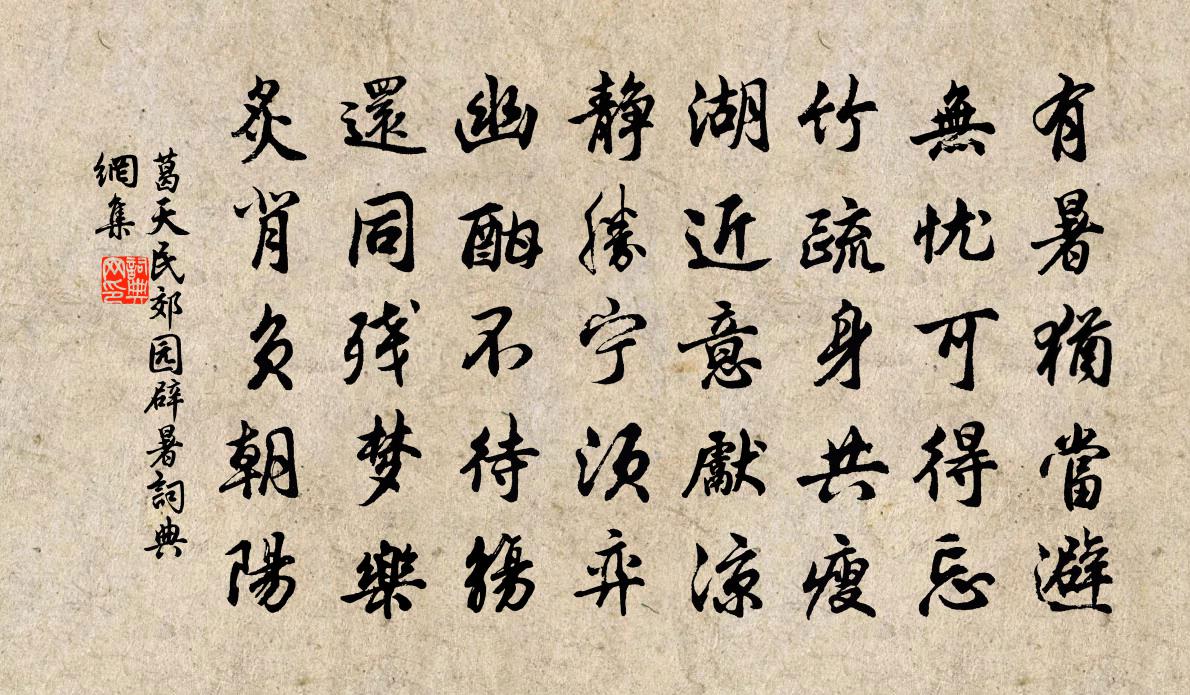 有暑猶當避
無忧可得忘
竹疏身共瘦
湖近意獻涼
静勝宁须弈
幽酣不待觴
還同残梦樂
炙背负朝陽
葛天民郊园辟暑詞典
網集
詞典
网印